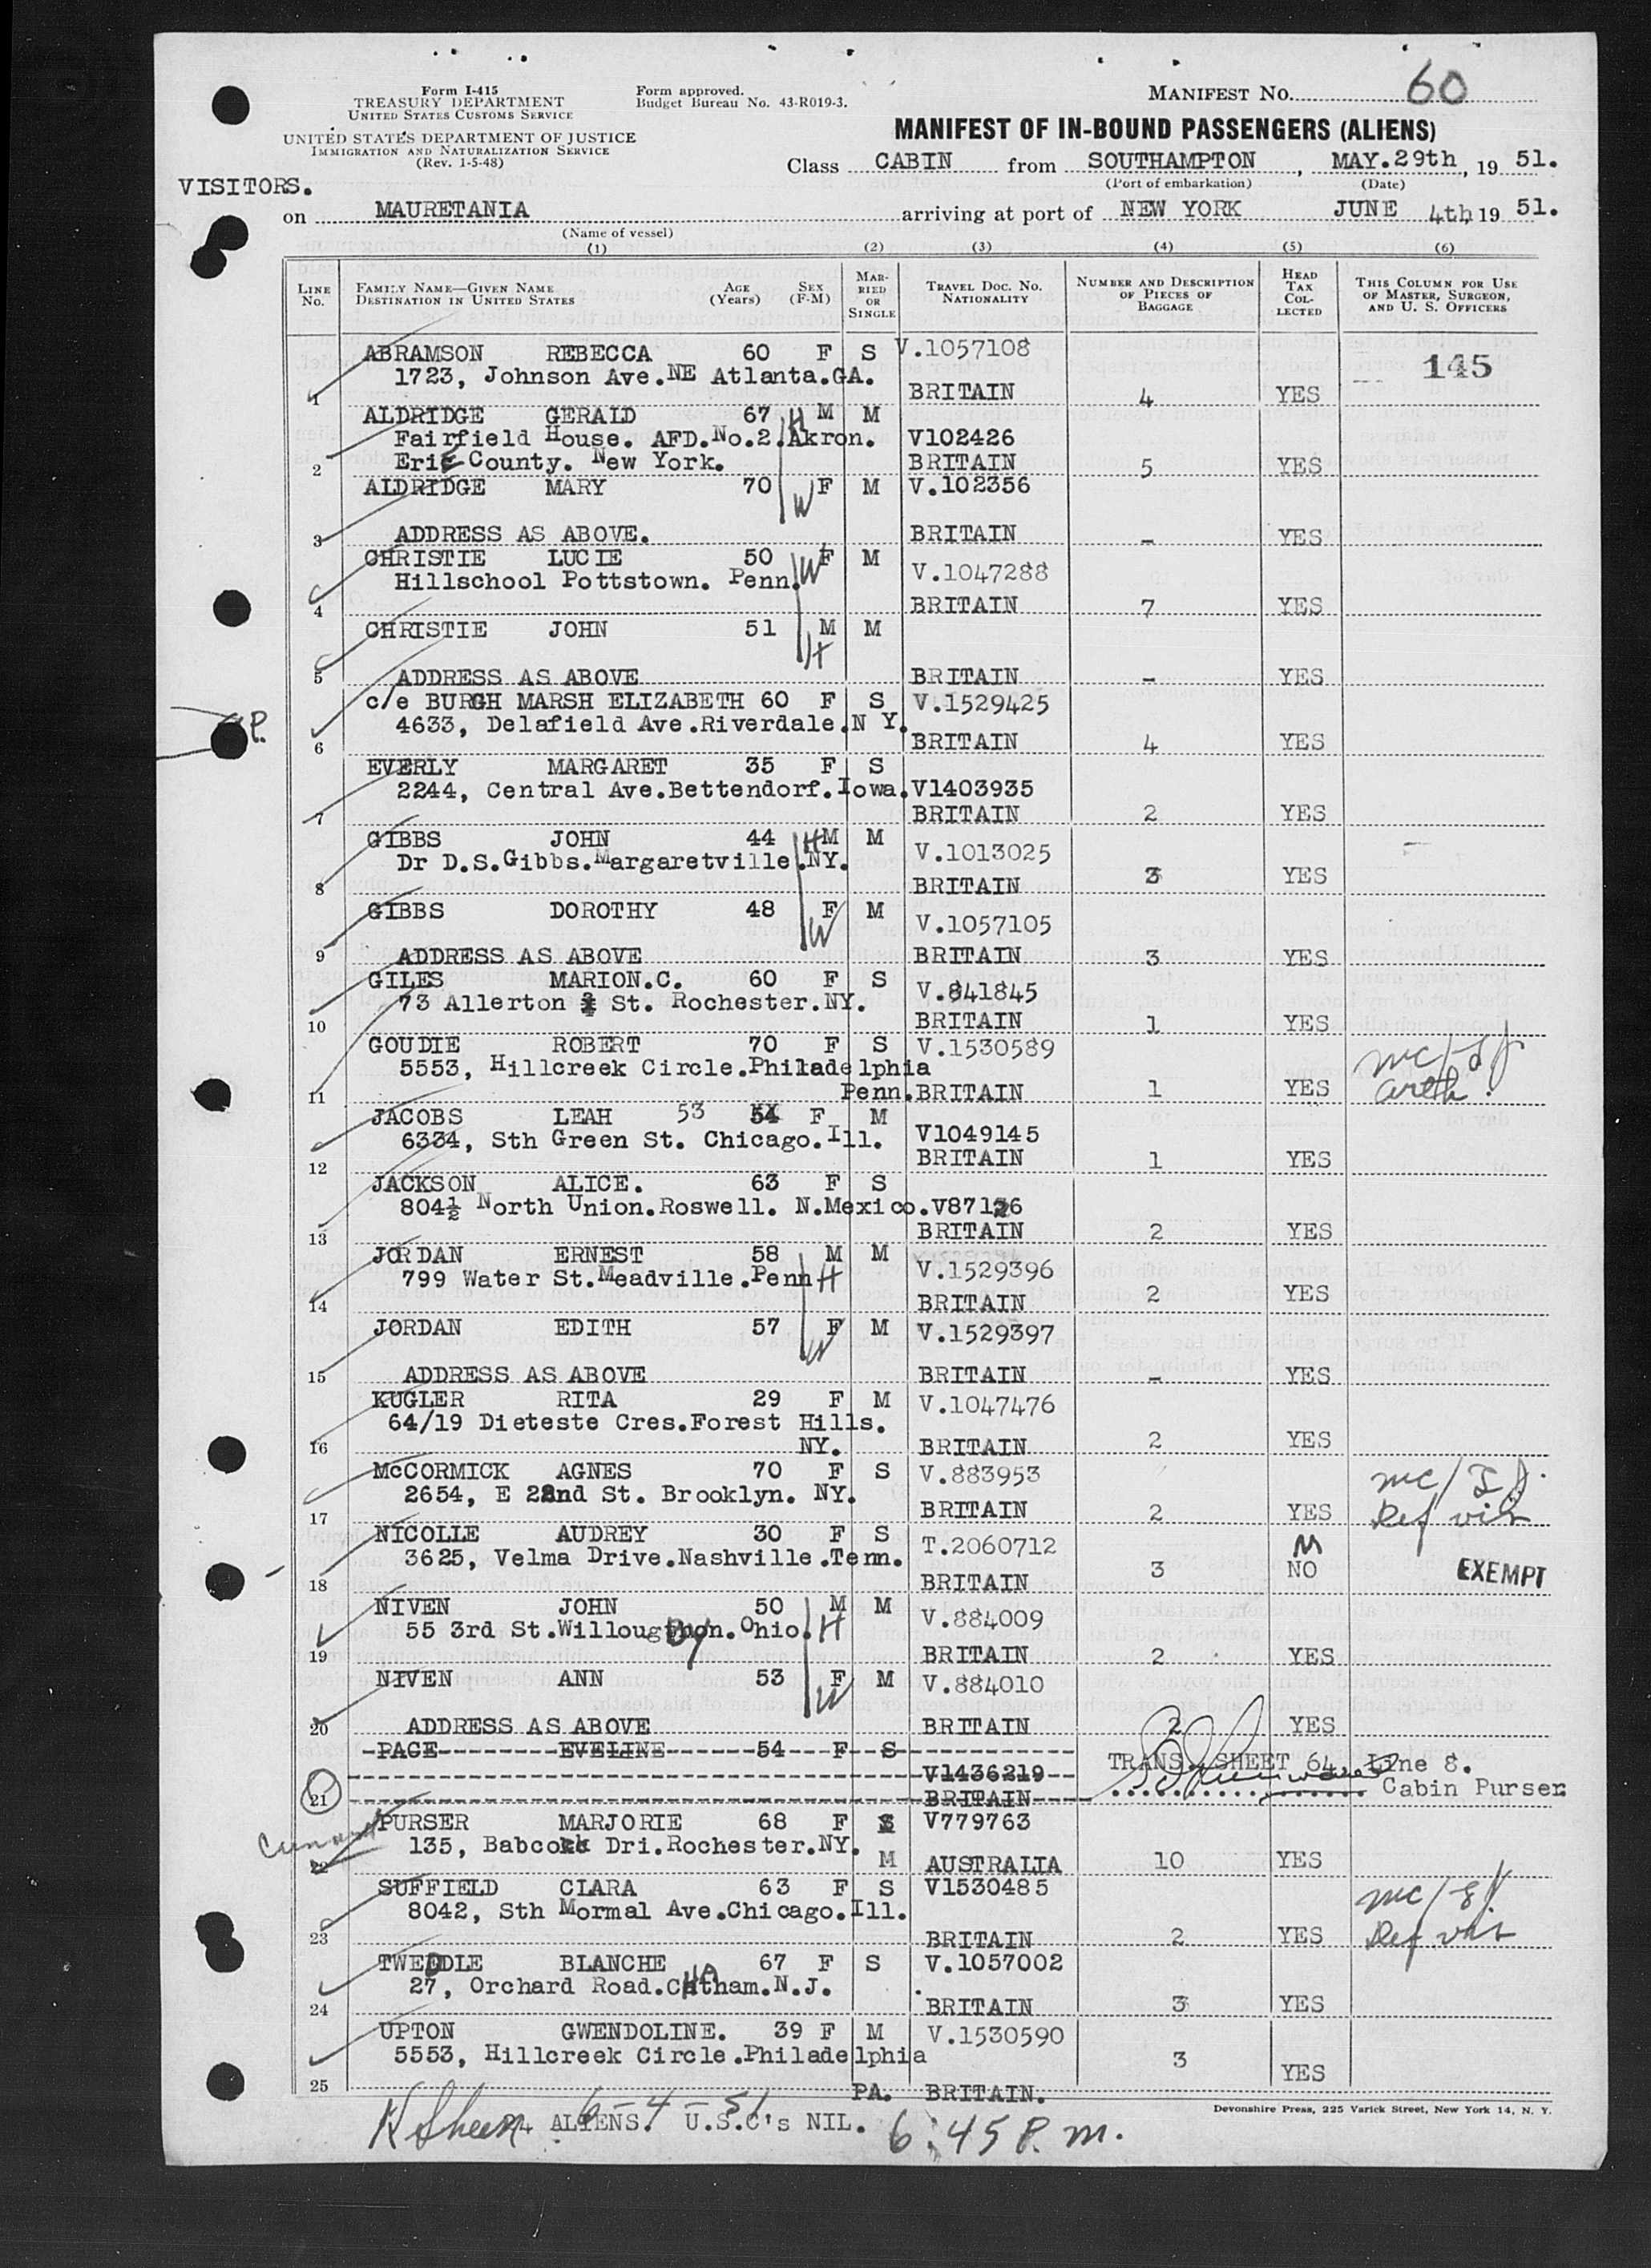 Form I-415
TREASURY DEPARTMENT
UNITED STATES CUSTOMS SERVICE
UNITED STATES DEPARTMENT OF JUSTICE
IMMIGRATION AND NATURALIZATION SERVICE
(Rev. 1-5-48)
Form approved.
Budget Bureau No. 43-R019-3.
MANIFEST NO. 60
MANIFEST OF IN-BOUND PASSENGERS (ALIENS)
Class CABIN from SOUTHAMPTON, MAY.29th, 19 51.
(Port of embarkation) (Date)
VISITORS.
on MAURETANIA arriving at port of NEW YORK JUNE 4th, 19 51.
(Name of vessel)
(1) (2) (3) (4) (5) (6)
LINE NO. FAMILY NAME—GIVEN NAME DESTINATION IN UNITED STATES AGE (Years) SEX (F-M) MARRIED OR SINGLE TRAVEL DOC. NO. NATIONALITY NUMBER AND DESCRIPTION OF PIECES OF BAGGAGE HEAD TAX COLLECTED THIS COLUMN FOR USE OF MASTER, SURGEON, AND U. S. OFFICERS
ABRAMSON REBECCA 60 F S V.1057108 145
1723, Johnson Ave.NE Atlanta.GA.
1 BRITAIN 4 YES
ALDRIDGE GERALD 67 H M M
Fairfield House. AFD.No.2.Akron. V102426
2 Erie County. New York. BRITAIN 5 YES
ALDRIDGE MARY 70 W F M V.102356
3 ADDRESS AS ABOVE. BRITAIN - YES
CHRISTIE LUCIE 50 W F M V.1047288
Hillschool Pottstown. Penn.
4 BRITAIN 7 YES
CHRISTIE JOHN 51 M M
H
5 ADDRESS AS ABOVE BRITAIN - YES
c/e BURGH MARSH ELIZABETH 60 F S V.1529425
P. 4633, Delafield Ave.Riverdale.N Y.
6 BRITAIN 4 YES
EVERLY MARGARET 35 F S
2244, Central Ave.Bettendorf.Iowa. V1403935
7 BRITAIN 2 YES
GIBBS JOHN 44 H M M V.1013025
Dr D.S.Gibbs.Margaretville.NY.
8 BRITAIN 3 YES
GIBBS DOROTHY 48 F M V.1057105
W
9 ADDRESS AS ABOVE BRITAIN 3 YES
GILES MARION.C. 60 F S V.841845
73 Allerton St. Rochester.NY.
10 BRITAIN 1 YES
GOUDIE ROBERT 70 F S V.1530589
5553, Hillcreek Circle.Philadelphia
11 Penn. BRITAIN 1 YES
JACOBS LEAH 53 54 F M
6334, Sth Green St. Chicago.Ill. V1049145
12 BRITAIN 1 YES
JACKSON ALICE. 63 F S
804½ North Union.Roswell. N.Mexico. V87126
13 BRITAIN 2 YES
JORDAN ERNEST 58 M M V.1529396
799 Water St.Meadville.Penn H
14 BRITAIN 2 YES
JORDAN EDITH 57 F M V.1529397
W
15 ADDRESS AS ABOVE BRITAIN - YES
KUGLER RITA 29 F M V.1047476
64/19 Dieteste Cres.Forest Hills.
16 NY. BRITAIN 2 YES
McCORMICK AGNES 70 F S V.883953
2654, E 22nd St. Brooklyn. NY.
17 BRITAIN 2 YES
NICOLLE AUDREY 30 F S T.2060712
3625, Velma Drive.Nashville.Tenn.
18 BRITAIN 3 NO EXEMPT
NIVEN JOHN 50 M M V.884009
55 3rd St.Willoughby.Ohio. H
19 BRITAIN 2 YES
NIVEN ANN 53 F M V.884010
W
20 ADDRESS AS ABOVE BRITAIN 2 YES
PAGE EVELINE 54 F S
V1436219 TRANS. SHEET 64. Line 8.
21 BRITAIN Cabin Purser
PURSER MARJORIE 68 F S V779763
Cunard 135, Babcock Dri.Rochester.NY.
22 M AUSTRALIA 10 YES
SUFFIELD CLARA 63 F S V1530485
8042, Sth Mormal Ave.Chicago.Ill.
23 BRITAIN 2 YES
TWEDDLE BLANCHE 67 F S V.1057002
27, Orchard Road.Chatham.N.J.
24 BRITAIN 3 YES
UPTON GWENDOLINE. 39 F M V.1530590
5553, Hillcreek Circle.Philadelphia
25 PA. BRITAIN. 3 YES
Devonshire Press, 225 Varick Street, New York 14, N. Y.
6-4-51
24 ALIENS. U.S.C's NIL. 6:45 P.m.